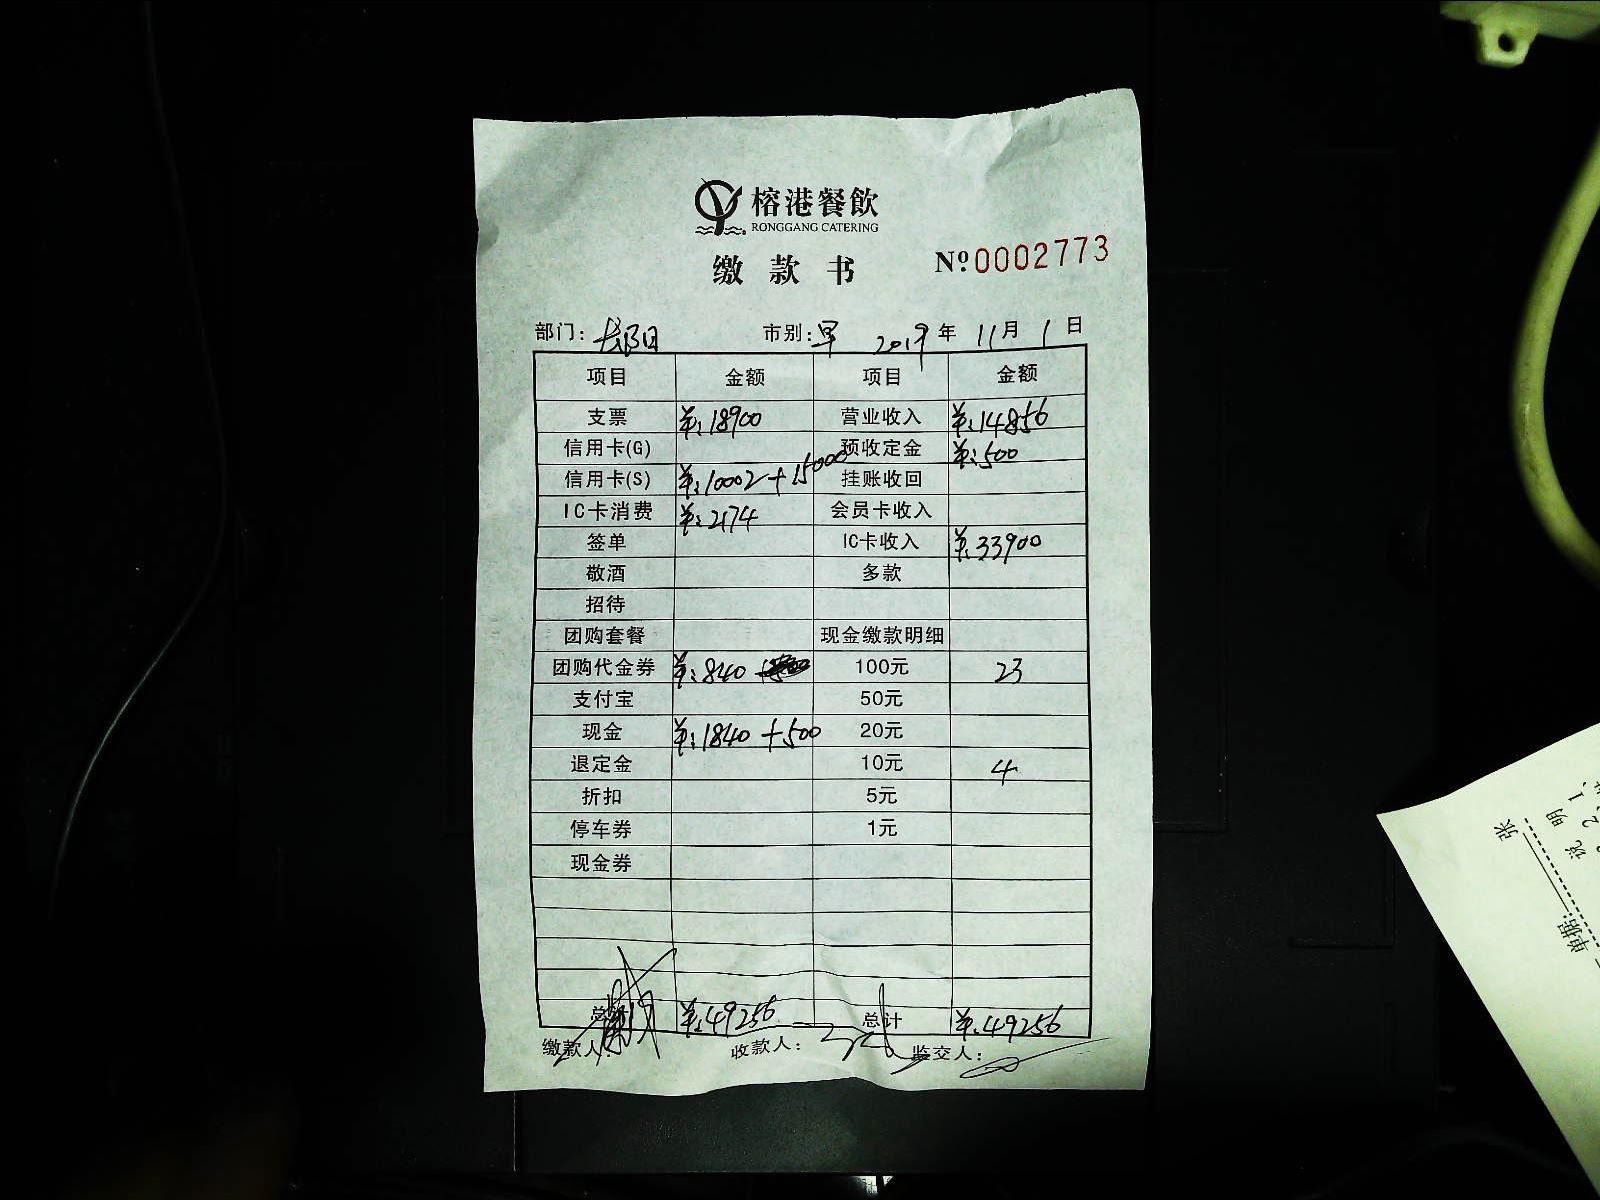 榕港餐飲
RONGGANG CATERING
缴款书 №0002773
部门: 市别:早 2019年11月1日
项目 金额 项目 金额
支票 ¥:18900 营业收入 ¥:14856
信用卡(G) 预收定金 ¥:500
信用卡(S) ¥:10002+15000 挂账收回
IC卡消费 ¥:2174 会员卡收入
签单 IC卡收入 ¥:33900
敬酒 多款
招待
团购套餐 现金缴款明细
团购代金券 ¥:840 100元 23
支付宝 50元
现金 ¥:1840+500 20元
退定金 10元 4
折扣 5元
停车券 1元
现金券
总计 ¥:49256 总计 ¥:49256
缴款人: 收款人: 监交人:
张
说明 1、
2、
单据: